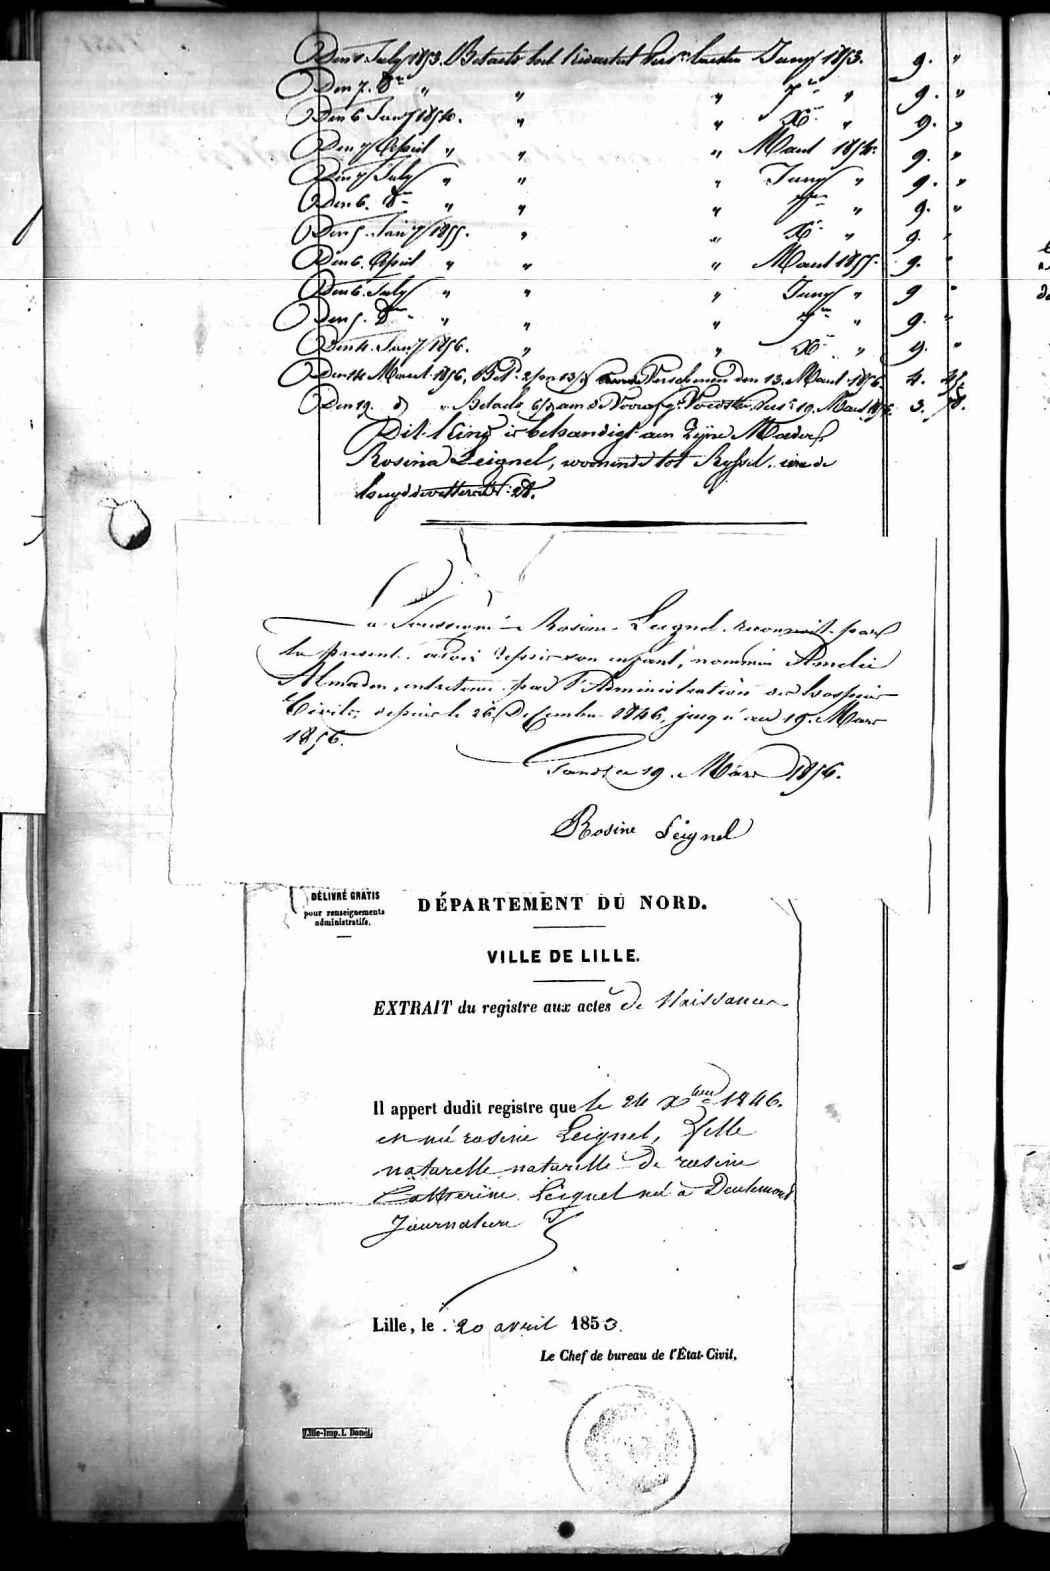 Den 1 July 1853. Betaelt het Kwartael Junij 1853. 9. "
Den 7. 8re " " " 7re " 9. "
Den 6 Janij 1854. " " Xre " 9. "
Den 7 April " " " Maart 1854. 9. "
Den 7 July " " " Junij " 9. "
Den 6. 8re " " " 7re " 9. "
Den 5. Janij 1855. " " Xre " 9. "
Den 6. April " " " Maart 1855. 9. "
Den 6. July " " " Junij " 9 "
Den 5. 8re " " " 7re " 9. "
Den 4. Janij 1856. " " Xre " 9. "
Den 14 Maart 1856, Verschenen den 13. Maart 1856. 4.
Den 19. d° " Betaeld 19. Maart 1856. 3.
Dit Kind is behandigt aen Zijne Moeder
Rosina Leignel, woonende tot Ryssel, rue de
La Soussignée Rosine Leignel reconnoit par
la presente avoir repris son enfant, nommée Amelie
Almaden, entretenu par l'Administration des hospices
Civils, depuis le 26 Decembre 1846, jusqu'au 19 Mars
1856.
Gand ce 19. Mars 1856.
Rosine Leignel
DÉLIVRÉ GRATIS
pour renseignements
administratifs.
DÉPARTEMENT DU NORD.
VILLE DE LILLE.
EXTRAIT du registre aux actes de Naissances
Il appert dudit registre que le 24 Xbre 1846.
est née rosine Leignel, fille
naturelle naturelle de rosine
Catherine Leignel née à Deulemont
Journalière
Lille, le 20 avril 1853.
Le Chef de bureau de l'État-Civil,
Lille-Imp. L. Danel.